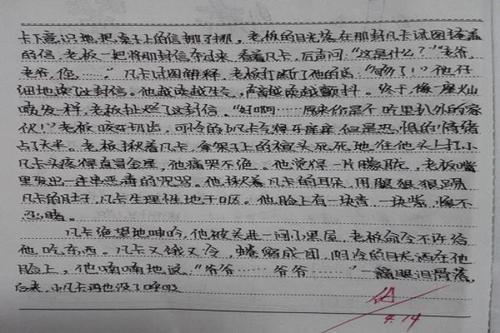 卡下意识地把桌上的信挪了挪,老板的目光落在那封凡卡试图掩盖
的信,老板一把将那封信夺过来,看着凡卡,厉声问:“这是什么?”“老爷,
老爷,您……”凡卡试图解释,老板打断了他的话:“够了!”他仔
细地读了这封信。他越读越生气,声音越读越颤抖。终于,像一座火山
喷发一样,老板扯烂了这封信。“好啊……原来你是个吃里扒外的家
伙!”老板咬牙切齿,可怜的小凡卡气得牙痒痒但是恐惧的情绪
占了大半。老板揪着凡卡,拿架子上的楦头死死地往他头上打。小
凡卡头疼得直冒金星,他痛哭不绝。他觉得一片朦胧,老板嘴
里发出一连串恶毒的咒骂。他揪着凡卡的耳朵,用腿狠狠踢
凡卡的肚子,凡卡生理性地干呕。他脸上有一块青一块紫,惨不
忍睹。
凡卡绝望地呻吟,他被关进一间小黑屋,老板命令不许给
他吃东西。凡卡又饿又冷,蜷缩成团,阴冷的月光洒在他
脸上,他喃喃地说:“爷爷……爷爷……”一滴眼泪滑落,
后来,小凡卡再也没了呼吸
4.14